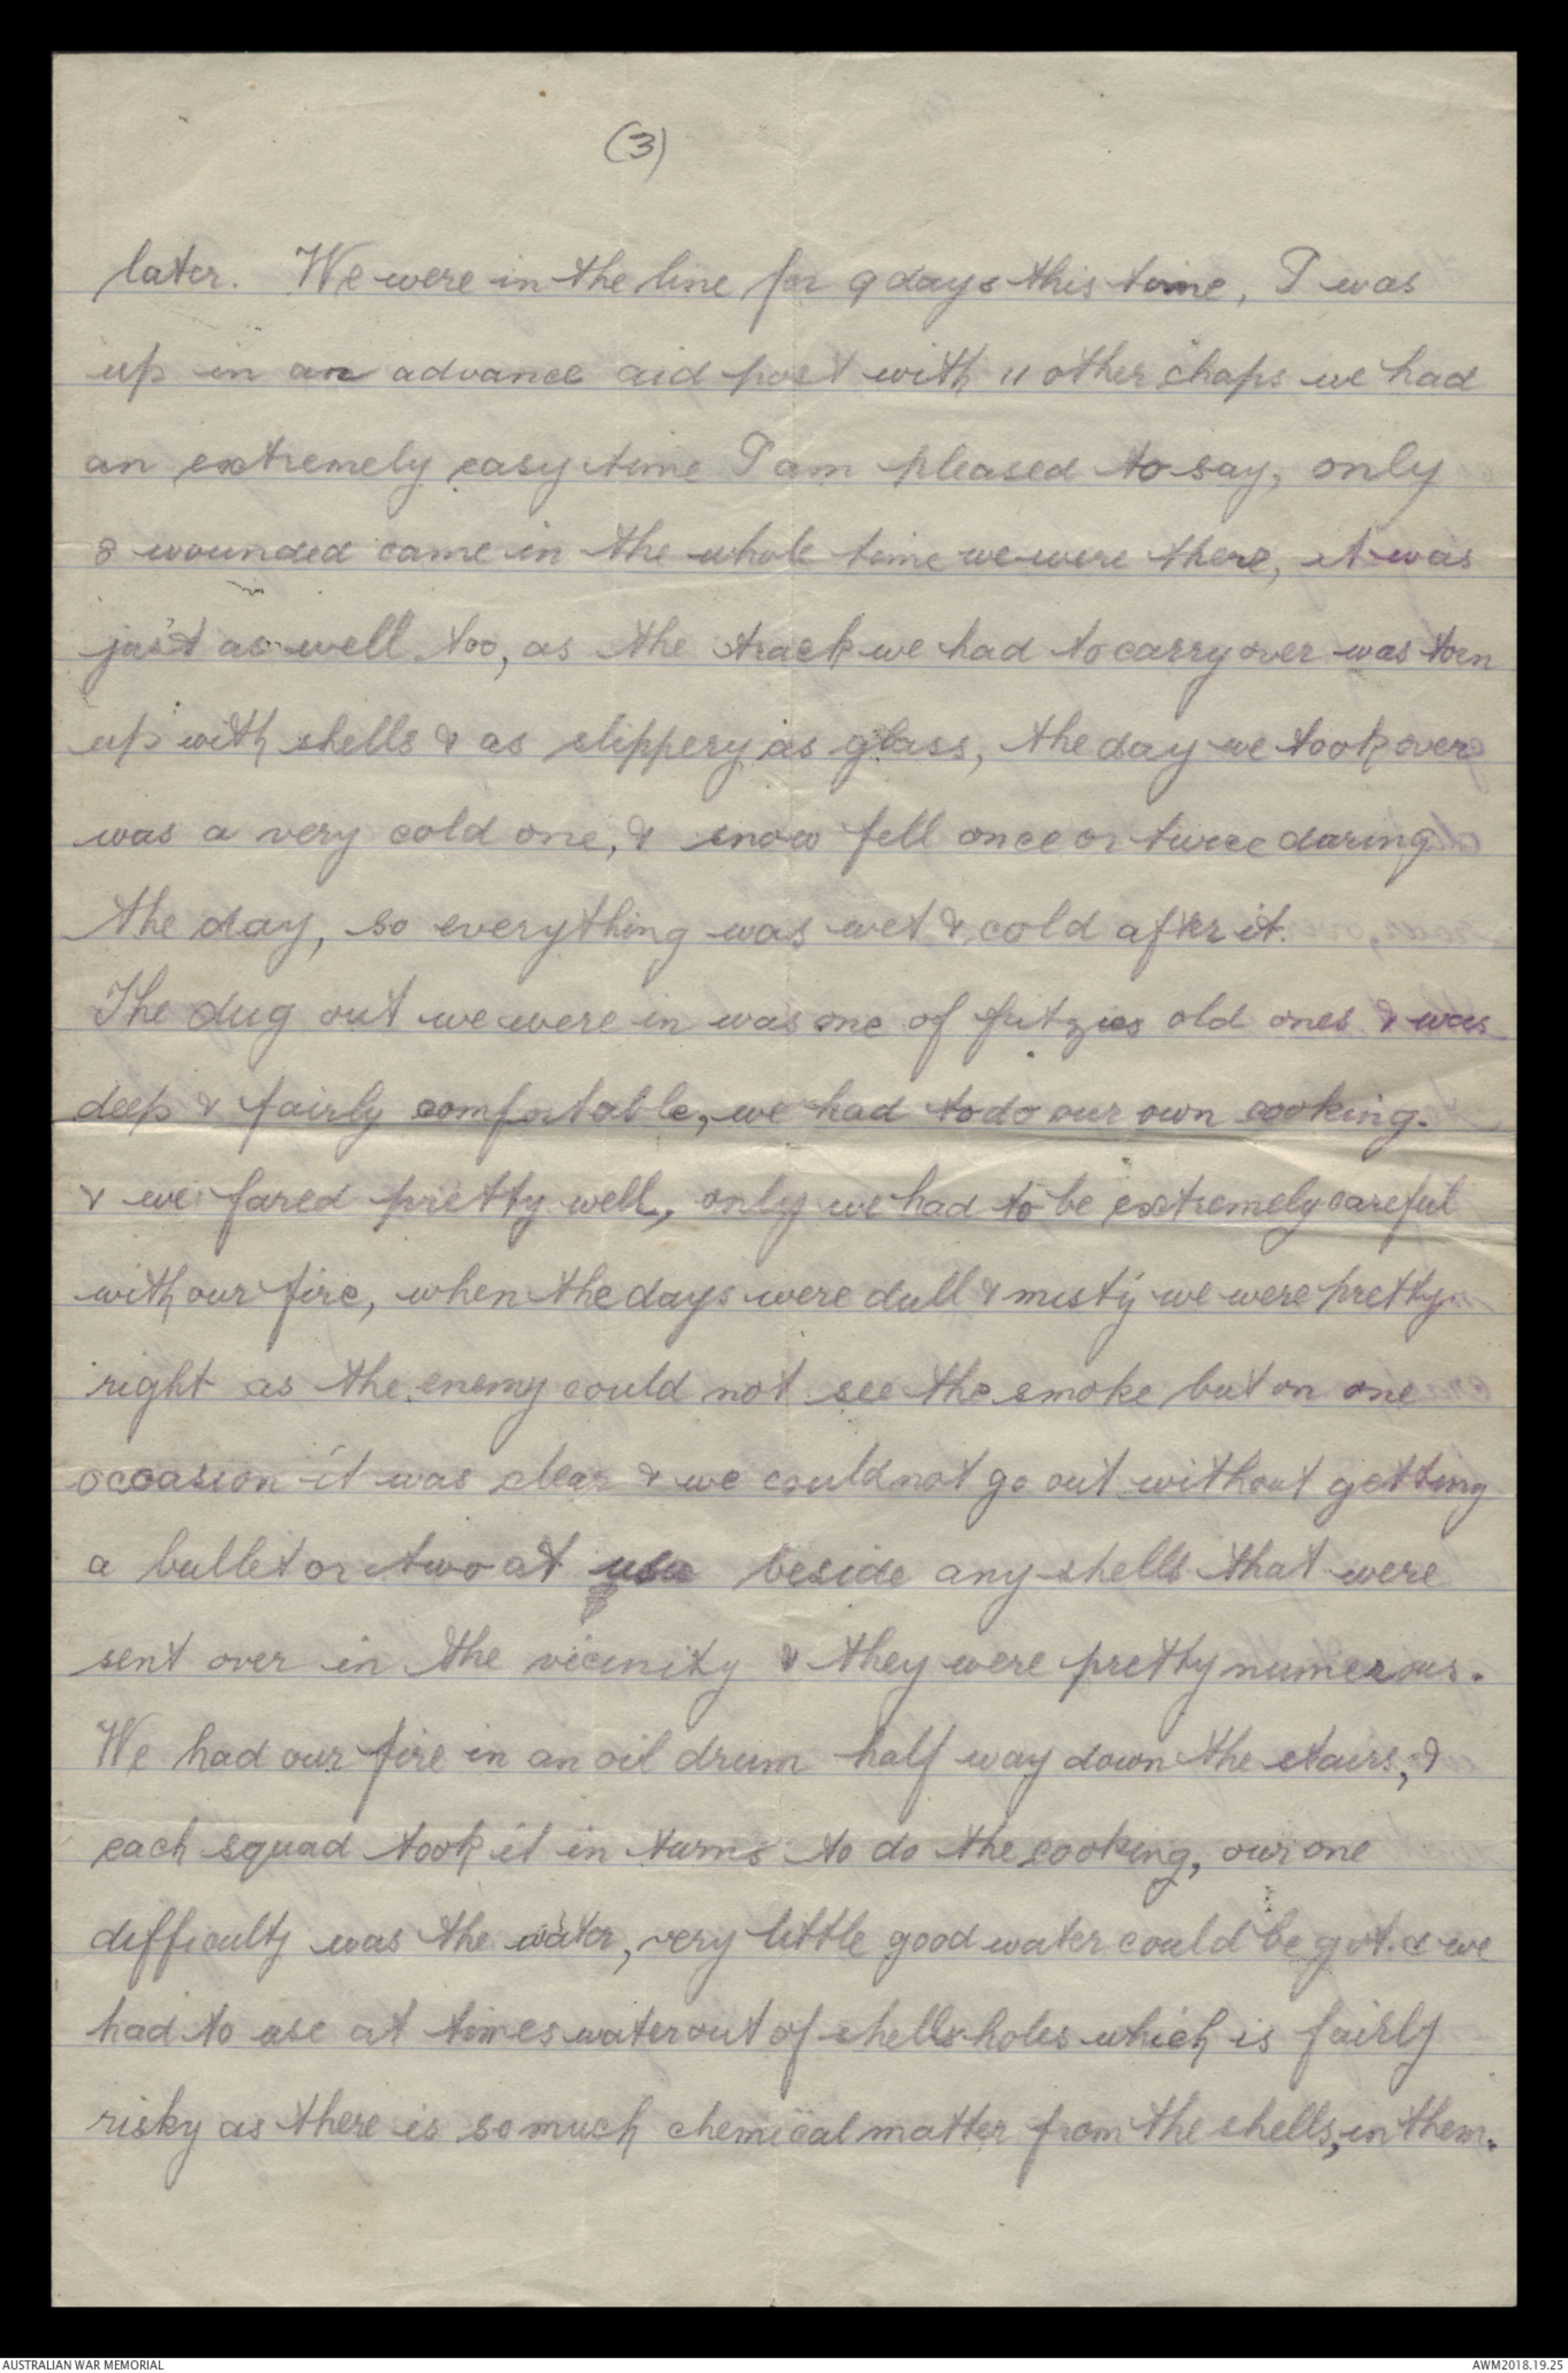 (3)
later. We were in the line for 9 days this time, I was
up in an advance aid post with 11 other chaps we had
an extremely easy time I am pleased to say, only
8 wounded came in the whole time we were there, it was
just as well too, as the track we had to carry over was torn
up with shells & as slippery as glass, the day we took over
was a very cold one, & snow fell once or twice during
the day, so everything was wet & cold after it.
The dug out we were in was one of fritzies old ones & was
deep & fairly comfortable, we had to do our own cooking.
& we fared pretty well, only we had to be extremely careful
with our fire, when the days were dull & misty we were pretty
right as the enemy could not see the smoke but on one
occasion it was clear & we could not go out without getting
a bullet or two at us beside any shells that were
sent over in the vicinity & they were pretty numerous.
We had our fire in an oil drum half way down the stairs, &
each squad took it in turns to do the cooking, our one
difficulty was the water, very little good water could be got. & we
had to use at times water out of shell holes which is fairly
risky as there is so much chemical matter from the shells, in them.
AUSTRALIAN WAR MEMORIAL
AWM2018.19.25